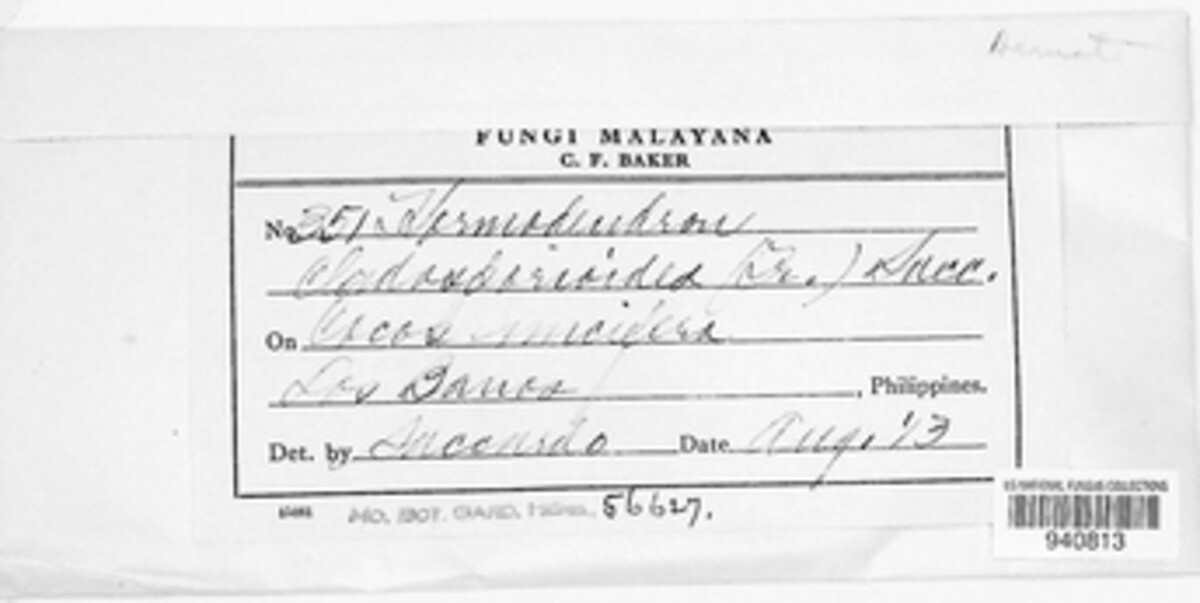 FUNGI MALAYANA
C. F. BAKER
No. 351 Hormodendron
Cladosporioides (Fr.) Sacc.
On Cocos nucifera
Los Banos, Philippines.
Det. by Saccardo Date Aug. '13
MO. BOT. GARD. HERB. 56627.
US NATIONAL FUNGUS COLLECTIONS
940813